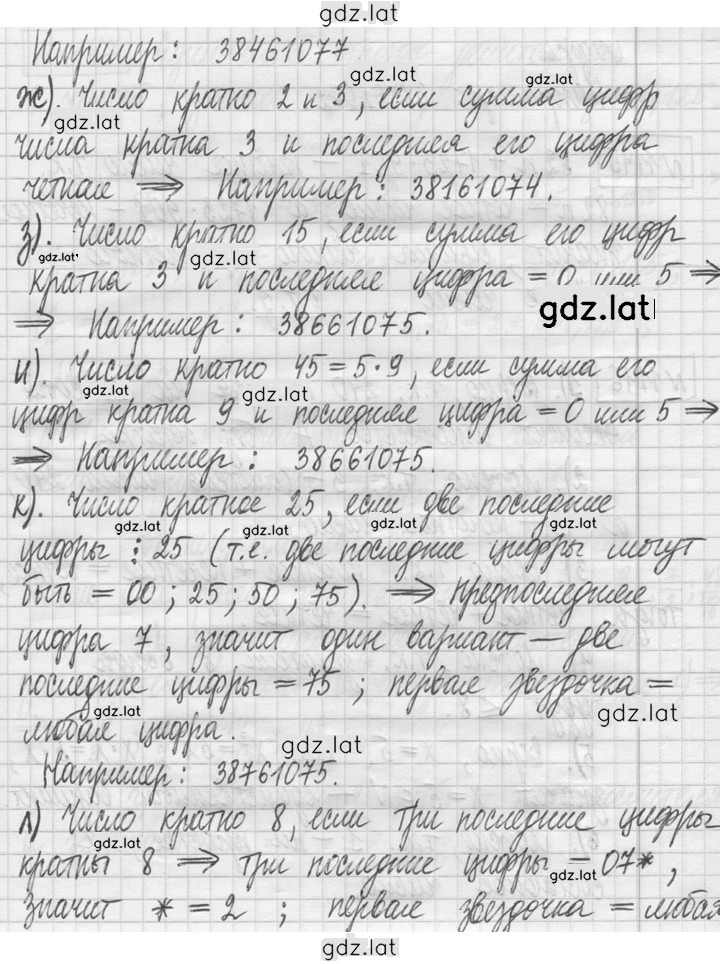 gdz.lat
Например: 38461077
gdz.lat
gdz.lat
ж). Число кратно 2 и 3, если сумма цифр
gdz.lat
числа кратна 3 и последняя его цифра
четная ⟹ Например: 38161074.
з). Число кратно 15, если сумма его цифр
gdz.lat
gdz.lat
кратна 3 и последняя цифра = 0 или 5 ⟹
gdz.lat
⟹ Например: 38661075.
и). Число кратно 45 = 5·9, если сумма его
gdz.lat
gdz.lat
цифр кратна 9 и последняя цифра = 0 или 5 ⟹
⟹ Например: 38661075.
к). Число кратное 25, если две последние
gdz.lat
gdz.lat
gdz.lat
gdz.lat
цифры ⋮ 25 (т.е. две последние цифры могут
быть = 00; 25; 50; 75). ⟹ предпоследняя
цифра 7, значит один вариант — две
gdz.lat
последние цифры = 75; первая звездочка =
gdz.lat
gdz.lat
любая цифра.
gdz.lat
Например: 38761075.
л) Число кратно 8, если три последние цифры
gdz.lat
кратны 8 ⟹ три последние цифры = 07*,
gdz.lat
значит * = 2; первая звездочка = любая
gdz.lat